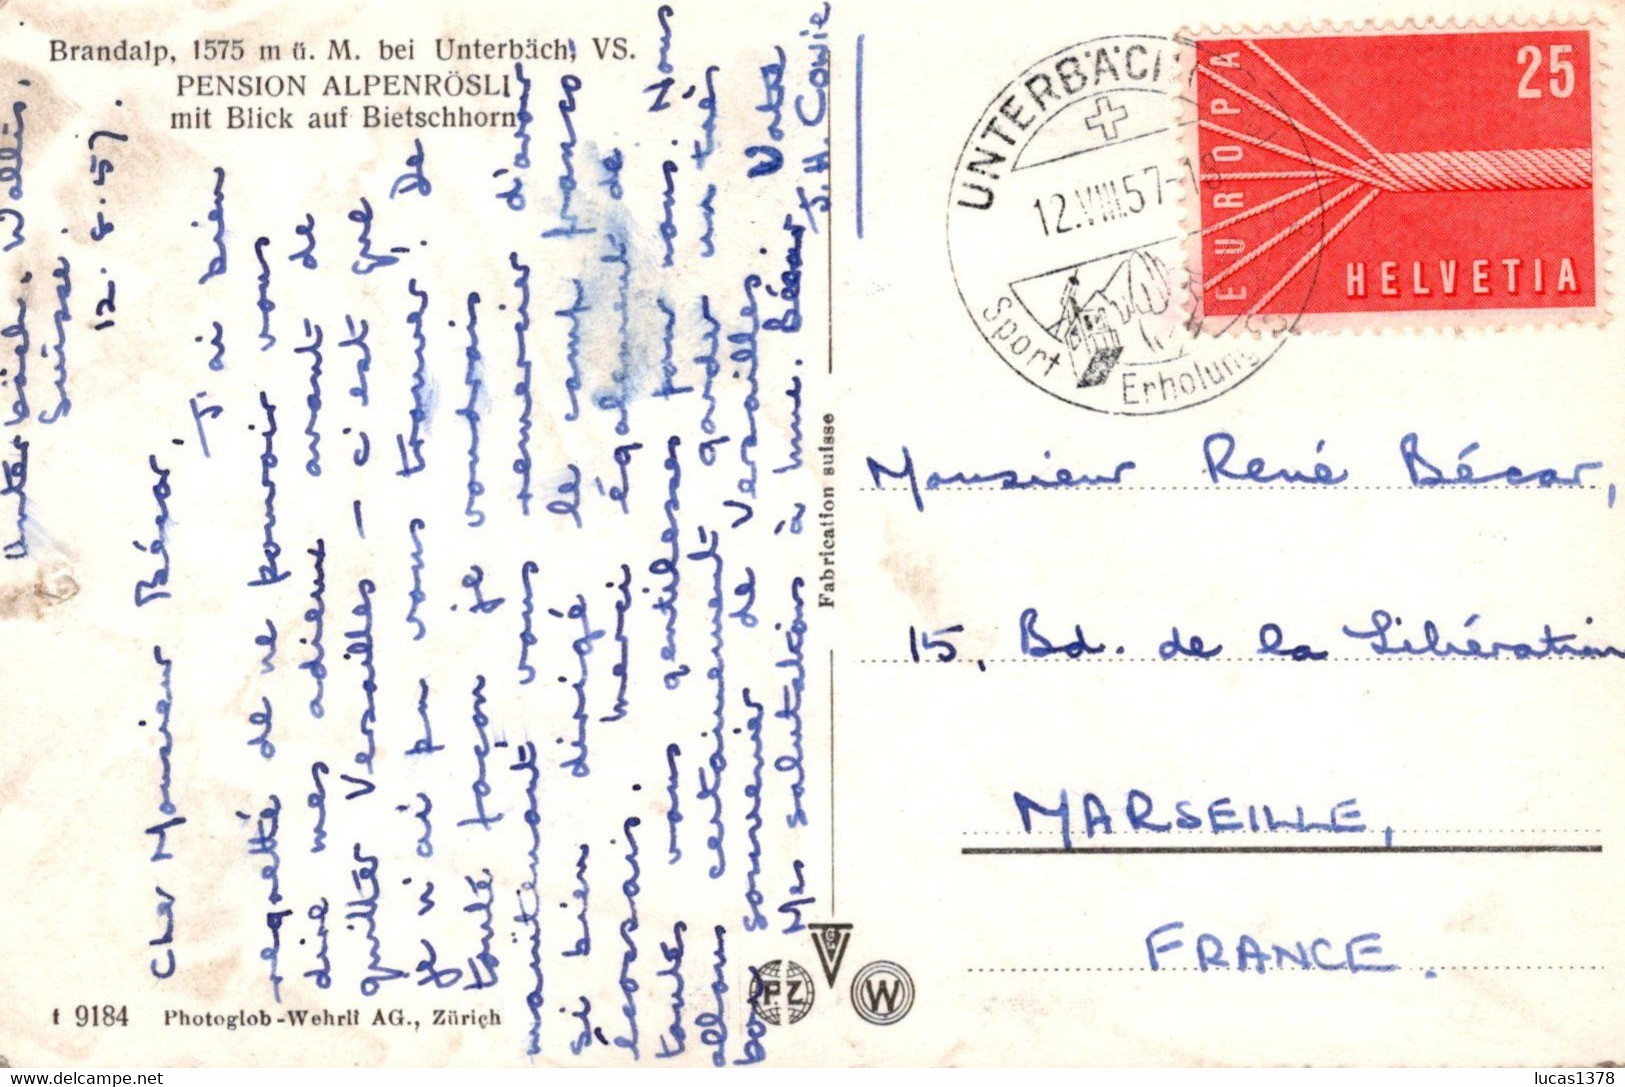 Brandalp, 1575 m ü. M. bei Unterbäch, VS.
PENSION ALPENRÖSLI
mit Blick auf Bietschhorn
Unterbäch, Wallis,
Suisse.
12. 8. 57.
Cher Monsieur Bécar,
J'ai bien
regretté de ne pouvoir vous
dire mes adieux avant de
quitter Versailles – c'est que
je n'ai pu vous trouver. De
toute façon je voudrais
maintenant vous remercier d'avoir
si bien dirigé le camp franco
écossais. Merci également de
toutes vos gentillesses pour nous. Nous
allons certainement garder un très
bon souvenir de Versailles. Votre
Mes salutations à Mme. Bécar
J. H.
Fabrication suisse
t 9184 Photoglob-Wehrli AG., Zürich
PZ
G
W
UNTERBÄCH
12.VIII.57-18
Sport
Erholung
EUROPA
25
HELVETIA
Monsieur René Bécar,
15, Bd. de la Libération
MARSEILLE,
FRANCE.
lucas1378